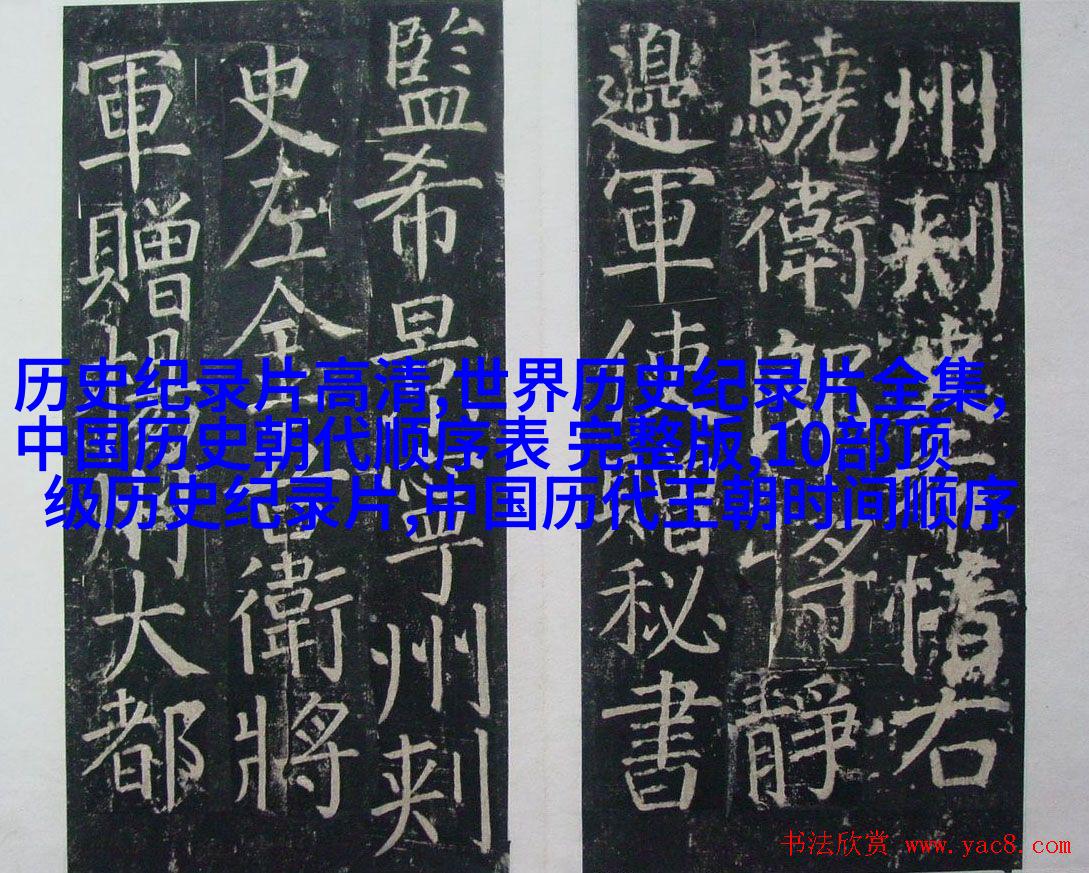 州刺惜右
驍衛郎將靜
邊軍使贈秘書
監希景寧州刺
史左金吾衛將
軍贈揚州大都
历史纪录片高清,世界历史纪录片全集,
中国历史朝代顺序表 完整版,10部顶
级历史纪录片,中国历代王朝时间顺序
书法欣赏 www.yac8.com